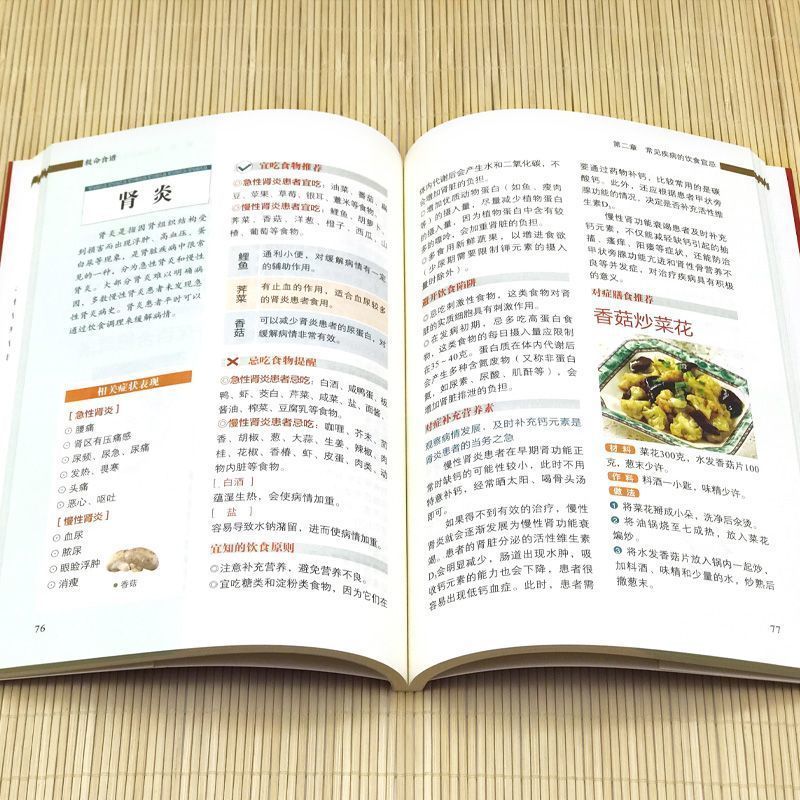 救命食谱
肾 炎
肾炎是指因肾组织结构受
到损害而出现浮肿、高血压、蛋
白尿等现象，是肾脏疾病中很常
见的一种，分为急性肾炎和慢性
肾炎。大部分肾炎难以明确病
因，多数慢性肾炎患者未发现急
性肾炎病史。肾炎患者平时可以
通过饮食调理来缓解病情。
相关症状表现
［急性肾炎］
⊙腰痛
⊙肾区有压痛感
⊙尿频、尿急、尿痛
⊙发热、畏寒
⊙头痛
⊙恶心、呕吐
［慢性肾炎］
⊙血尿
⊙脓尿
⊙眼睑浮肿
⊙消瘦
●香菇
76
宜吃食物推荐
◎急性肾炎患者宜吃：油菜、番茄、扁
豆、苹果、草莓、银耳、薏米等食物。
◎慢性肾炎患者宜吃：鲤鱼、胡萝卜、
荠菜、香菇、洋葱、橙子、西瓜、山
楂、葡萄等食物。
鲤鱼
通利小便，对缓解病情有一定
的辅助作用。
荠菜
有止血的作用，适合血尿较多
的肾炎患者食用。
香菇
可以减少肾炎患者的尿蛋白，对
缓解病情非常有效。
忌吃食物提醒
◎急性肾炎患者忌吃：白酒、咸鸭蛋、板
鸭、虾、茭白、芹菜、咸菜、盐、面酱、
酱油、榨菜、豆腐乳等食物。
◎慢性肾炎患者忌吃：咖喱、芥末、茴
香、胡椒、葱、大蒜、生姜、辣椒、肉
桂、花椒、香椿、虾、皮蛋、肉类、动
物内脏等食物。
［白酒］
蕴湿生热，会使病情加重。
［盐］
容易导致水钠潴留，进而使病情加重。
宜知的饮食原则
◎注意补充营养，避免营养不良。
◎宜吃糖类和淀粉类食物，因为它们在
第二章 常见疾病的饮食宜忌
体内代谢后会产生水和二氧化碳，不
会增加肾脏的负担。
增加优质动物蛋白（如鱼、瘦肉
等）的摄入量，尽量减少植物蛋白
的摄入量，因为植物蛋白中含有较
多的嘌呤，会加重肾脏的负担。
◎多食用新鲜蔬果，以增进食欲
（少尿期需要限制钾元素的摄入
量时除外）。
避开饮食陷阱
◎忌吃刺激性食物，这类食物对肾
脏的实质细胞具有刺激作用。
◎在发病初期，忌多吃高蛋白食
物，这类食物的每日摄入量应限制
在35～40克。蛋白质在体内代谢后
会产生多种含氮废物（又称非蛋白
氮，如尿素、尿酸、肌酐等），会
增加肾脏排泄的负担。
对症补充营养素
观察病情发展，及时补充钙元素是
肾炎患者的当务之急
慢性肾炎患者在早期肾功能正
常时缺钙的可能性较小，此时不用
特意补钙，经常晒太阳、喝骨头汤
即可。
如果得不到有效的治疗，慢性
肾炎就会逐渐发展为慢性肾功能衰
竭。患者的肾脏分泌的活性维生素
D₃会明显减少，肠道出现水肿，吸
收钙元素的能力也会下降，患者很
容易出现低钙血症。此时，患者需
要通过药物补钙，比较常用的是碳
酸钙。此外，还应根据患者甲状旁
腺功能的情况，决定是否补充活性维
生素D₃。
慢性肾功能衰竭患者及时补充
钙元素，不仅能减轻缺钙引起的抽
搐、瘙痒、阳痿等症状，还能防治
甲状旁腺功能亢进和肾性骨营养不
良等并发症，对治疗疾病具有积极
的意义。
对症膳食推荐
香菇炒菜花
材料 菜花300克，水发香菇片100
克，葱末少许。
作料 料酒一小匙，味精少许。
做法
1 将菜花掰成小朵，洗净后余烫。
2 将油锅烧至七成热，放入菜花
煸炒。
3 将水发香菇片放入锅内一起炒，
加料酒、味精和少量的水，炒熟后
撒葱末。
77